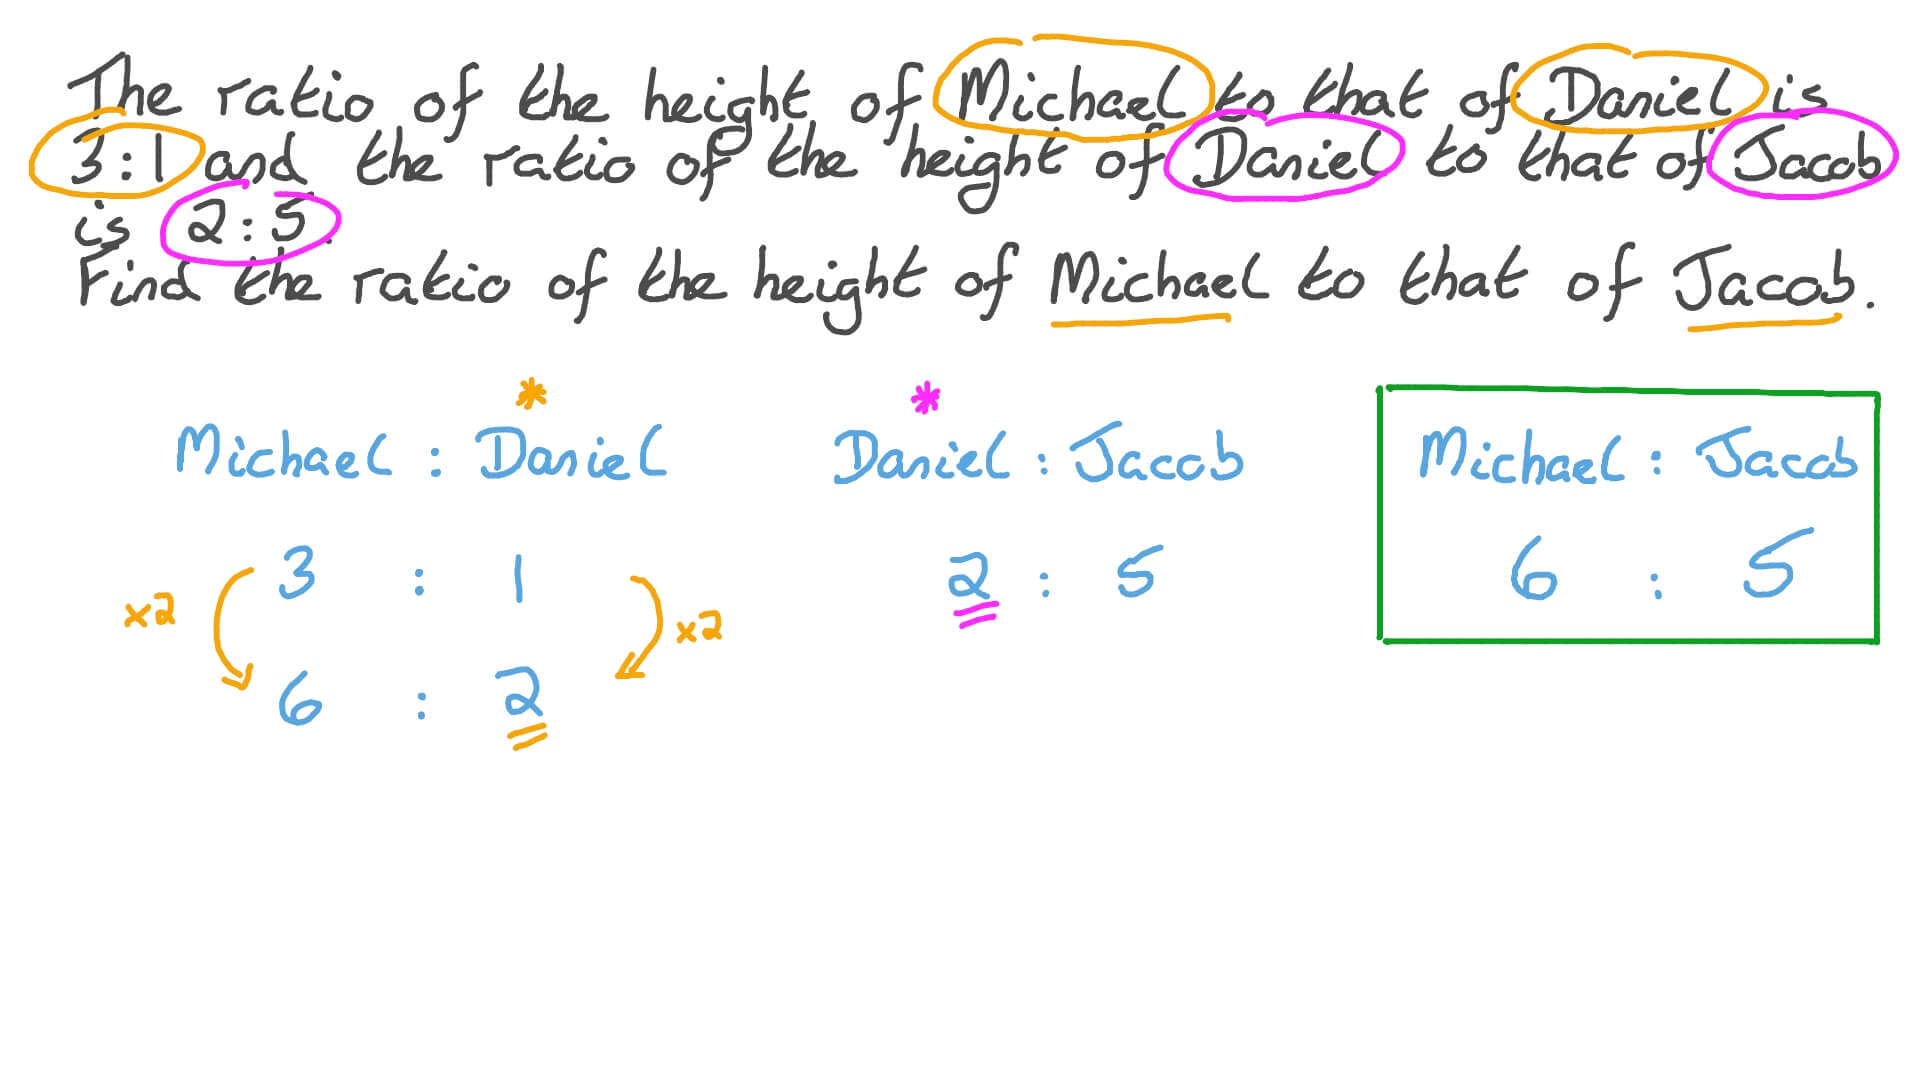 The ratio of the height of Michael to that of Daniel is
3:1 and the ratio of the height of Daniel to that of Jacob
is 2:5.
Find the ratio of the height of Michael to that of Jacob.
* *
Michael : Daniel Daniel : Jacob Michael : Jacob
3 : 1 2 : 5 6 : 5
×2 ×2
6 : 2